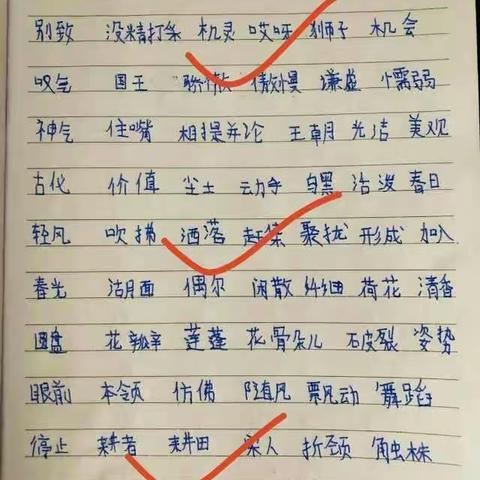 别致 没精打采 机灵 哎呀 狮子 机会
叹气 国王 骄傲 傲慢 谦虚 懦弱
神气 住嘴 相提并论 王朝 光洁 美观
古代 价值 尘土 动手 乌黑 活泼 春日
轻风 吹拂 洒落 赶集 聚拢 形成 加入
春光 湖面 偶尔 闲散 纤细 荷花 清香
圆盘 花瓣 莲蓬 花骨朵儿 破裂 姿势
眼前 本领 仿佛 随风 飘动 舞蹈
停止 耕者 耕田 宋人 折颈 触株